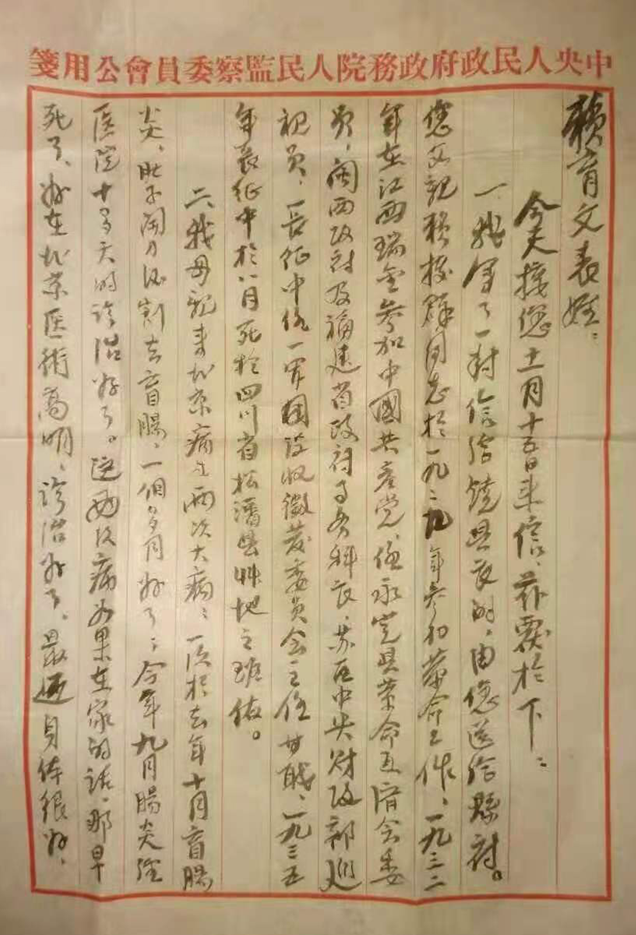 中央人民政府政務院人民監察委員會公用箋
賴育文表姪：
今天接您十一月十五日来信，茲覆於下：
一、我写了一封信給饒县长的，由您送给縣府。
您父親賴接群同志於一九二九年参加革命工作，一九三二
年在江西瑞金参加中國共產党，任永定县革命互濟会委
员，闽西政府及福建省政府財务科長，苏区中央财政部巡
視员，長征中任一军團没收徵發委员会主任等職，一九三五
年長征中於八月死於四川省松潘县草地之班佑。
二、我母親来北京病了两次大病：一次於去年十月盲腸
炎，肚子開刀后割去盲腸，一個多月好了；今年九月腸炎經
医院十多天的诊治好了。这两次病如果在家的话，那早
死了，好在北京医術高明，诊治好了，最近身体很好，